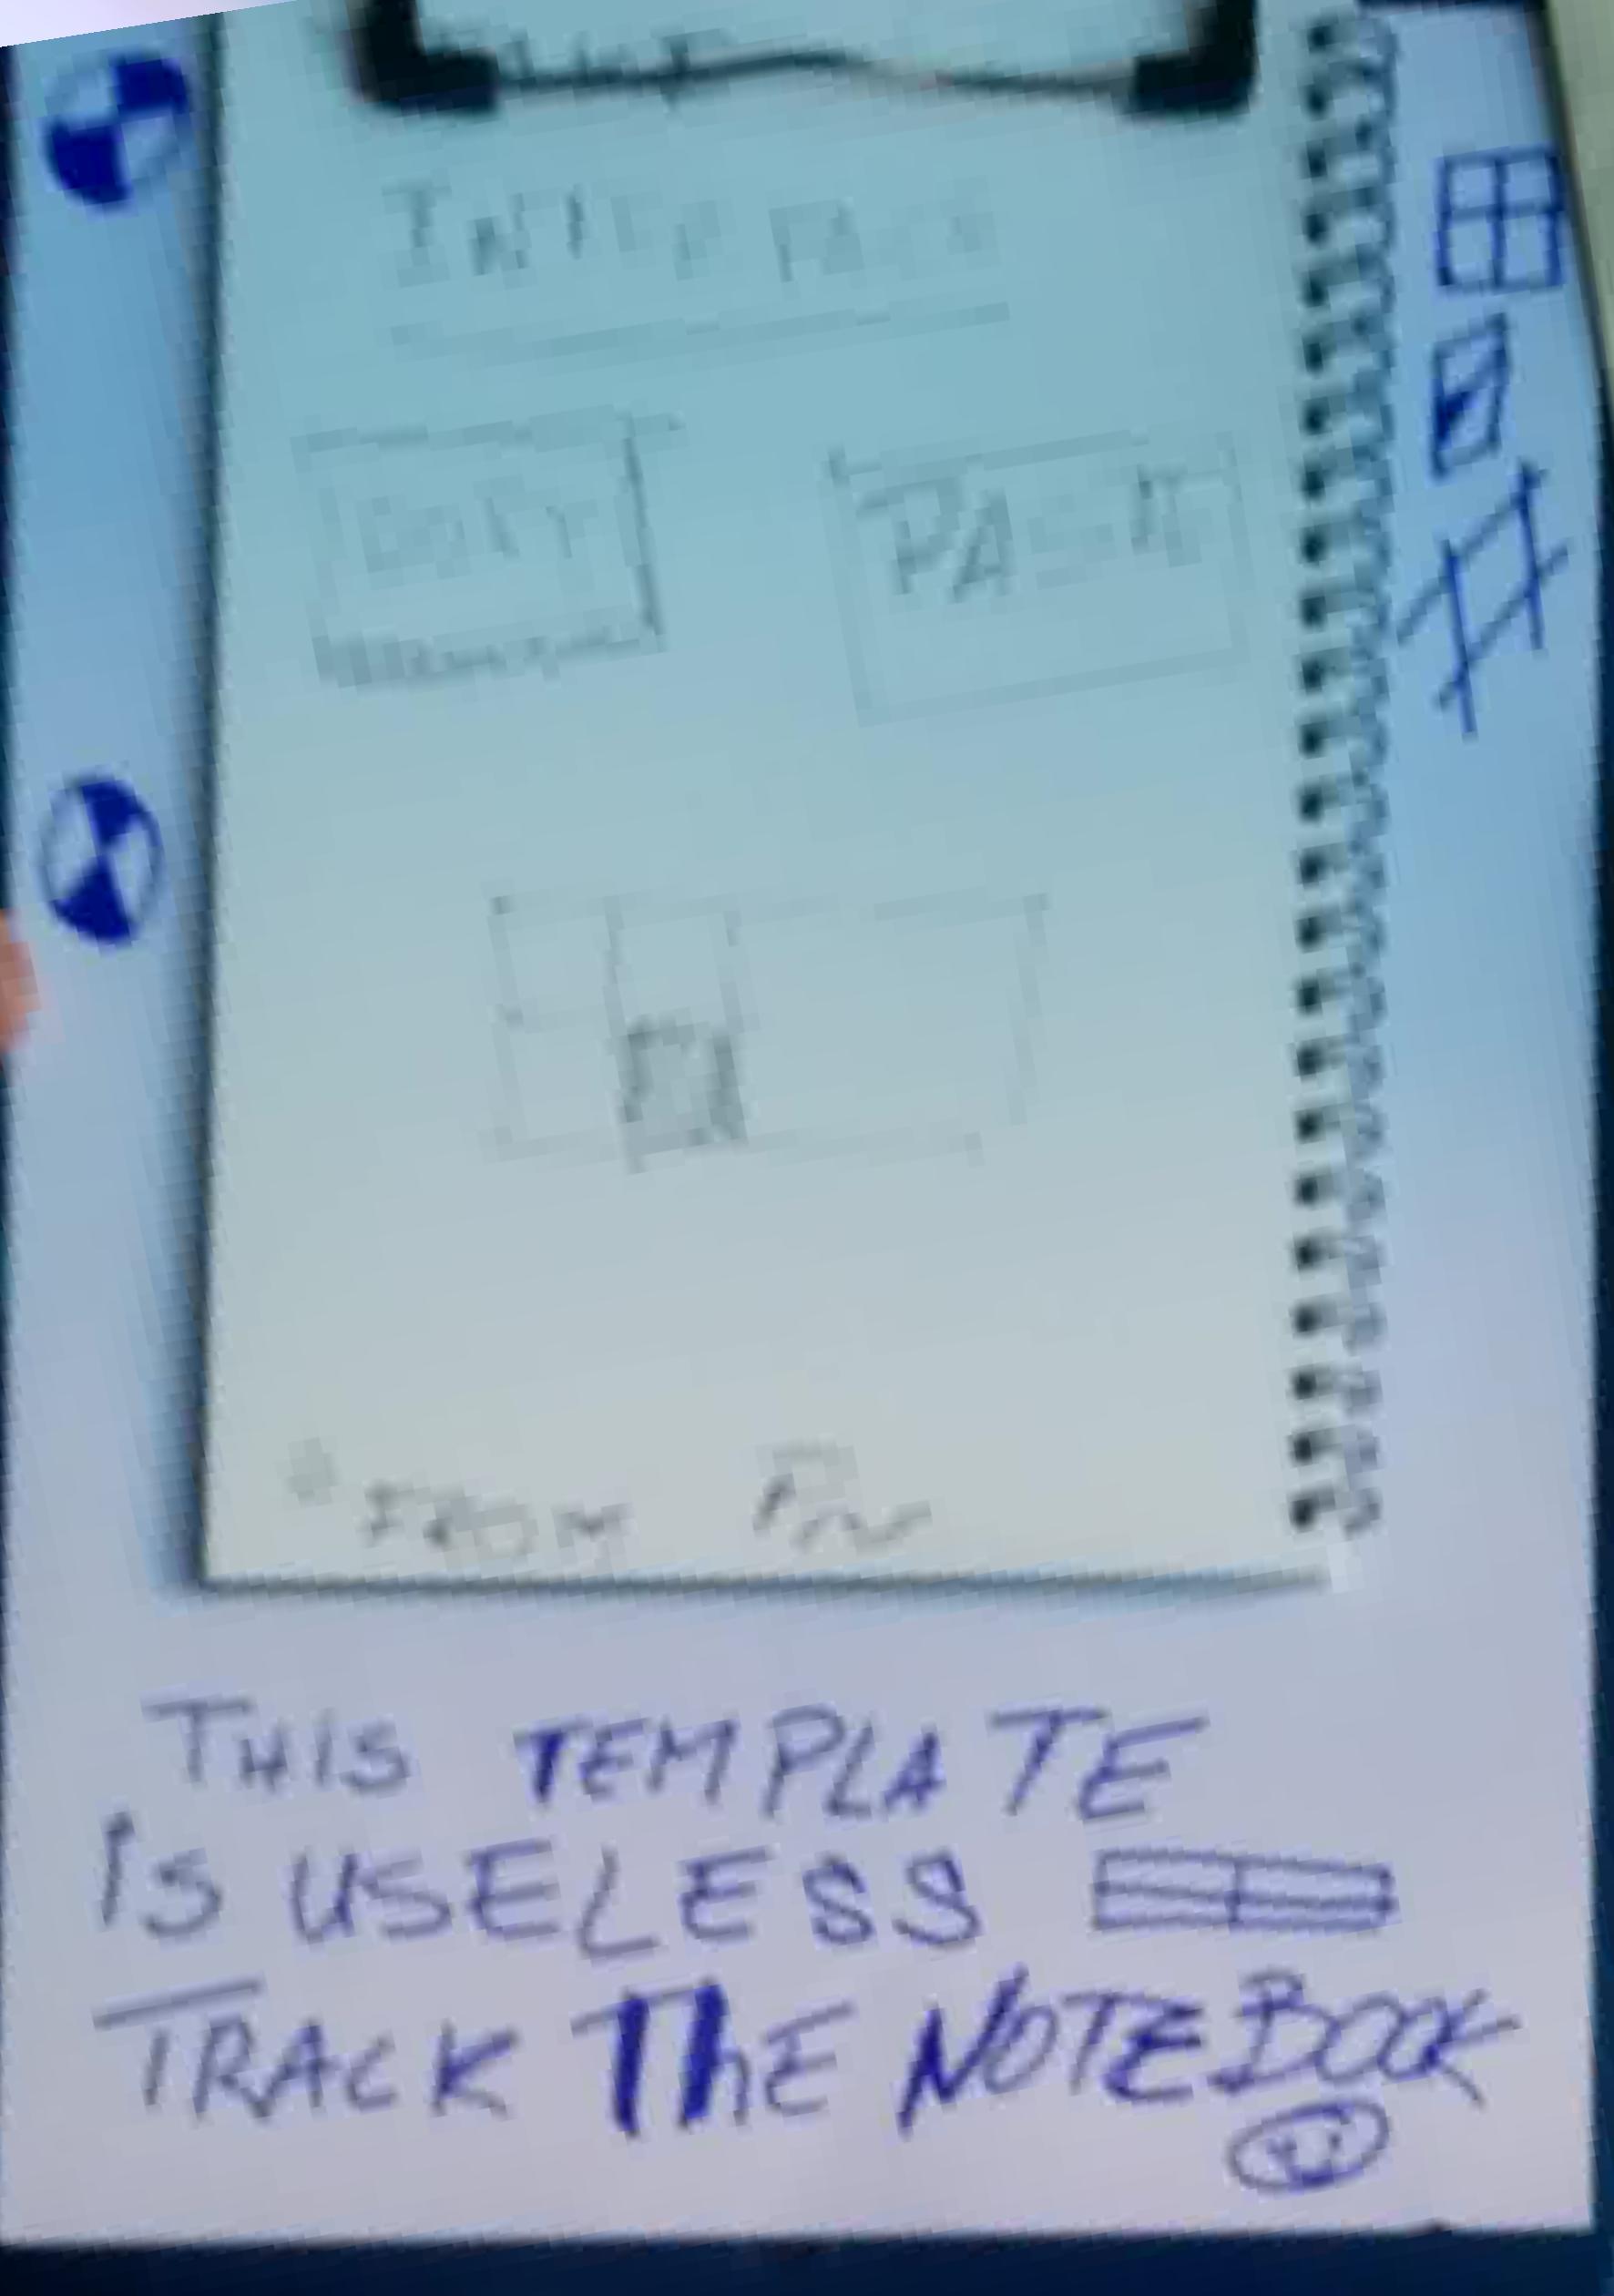 INTERFACE
COPY
PASTE
FROM
THIS TEMPLATE
IS USELESS
TRACK THE NOTEBOOK